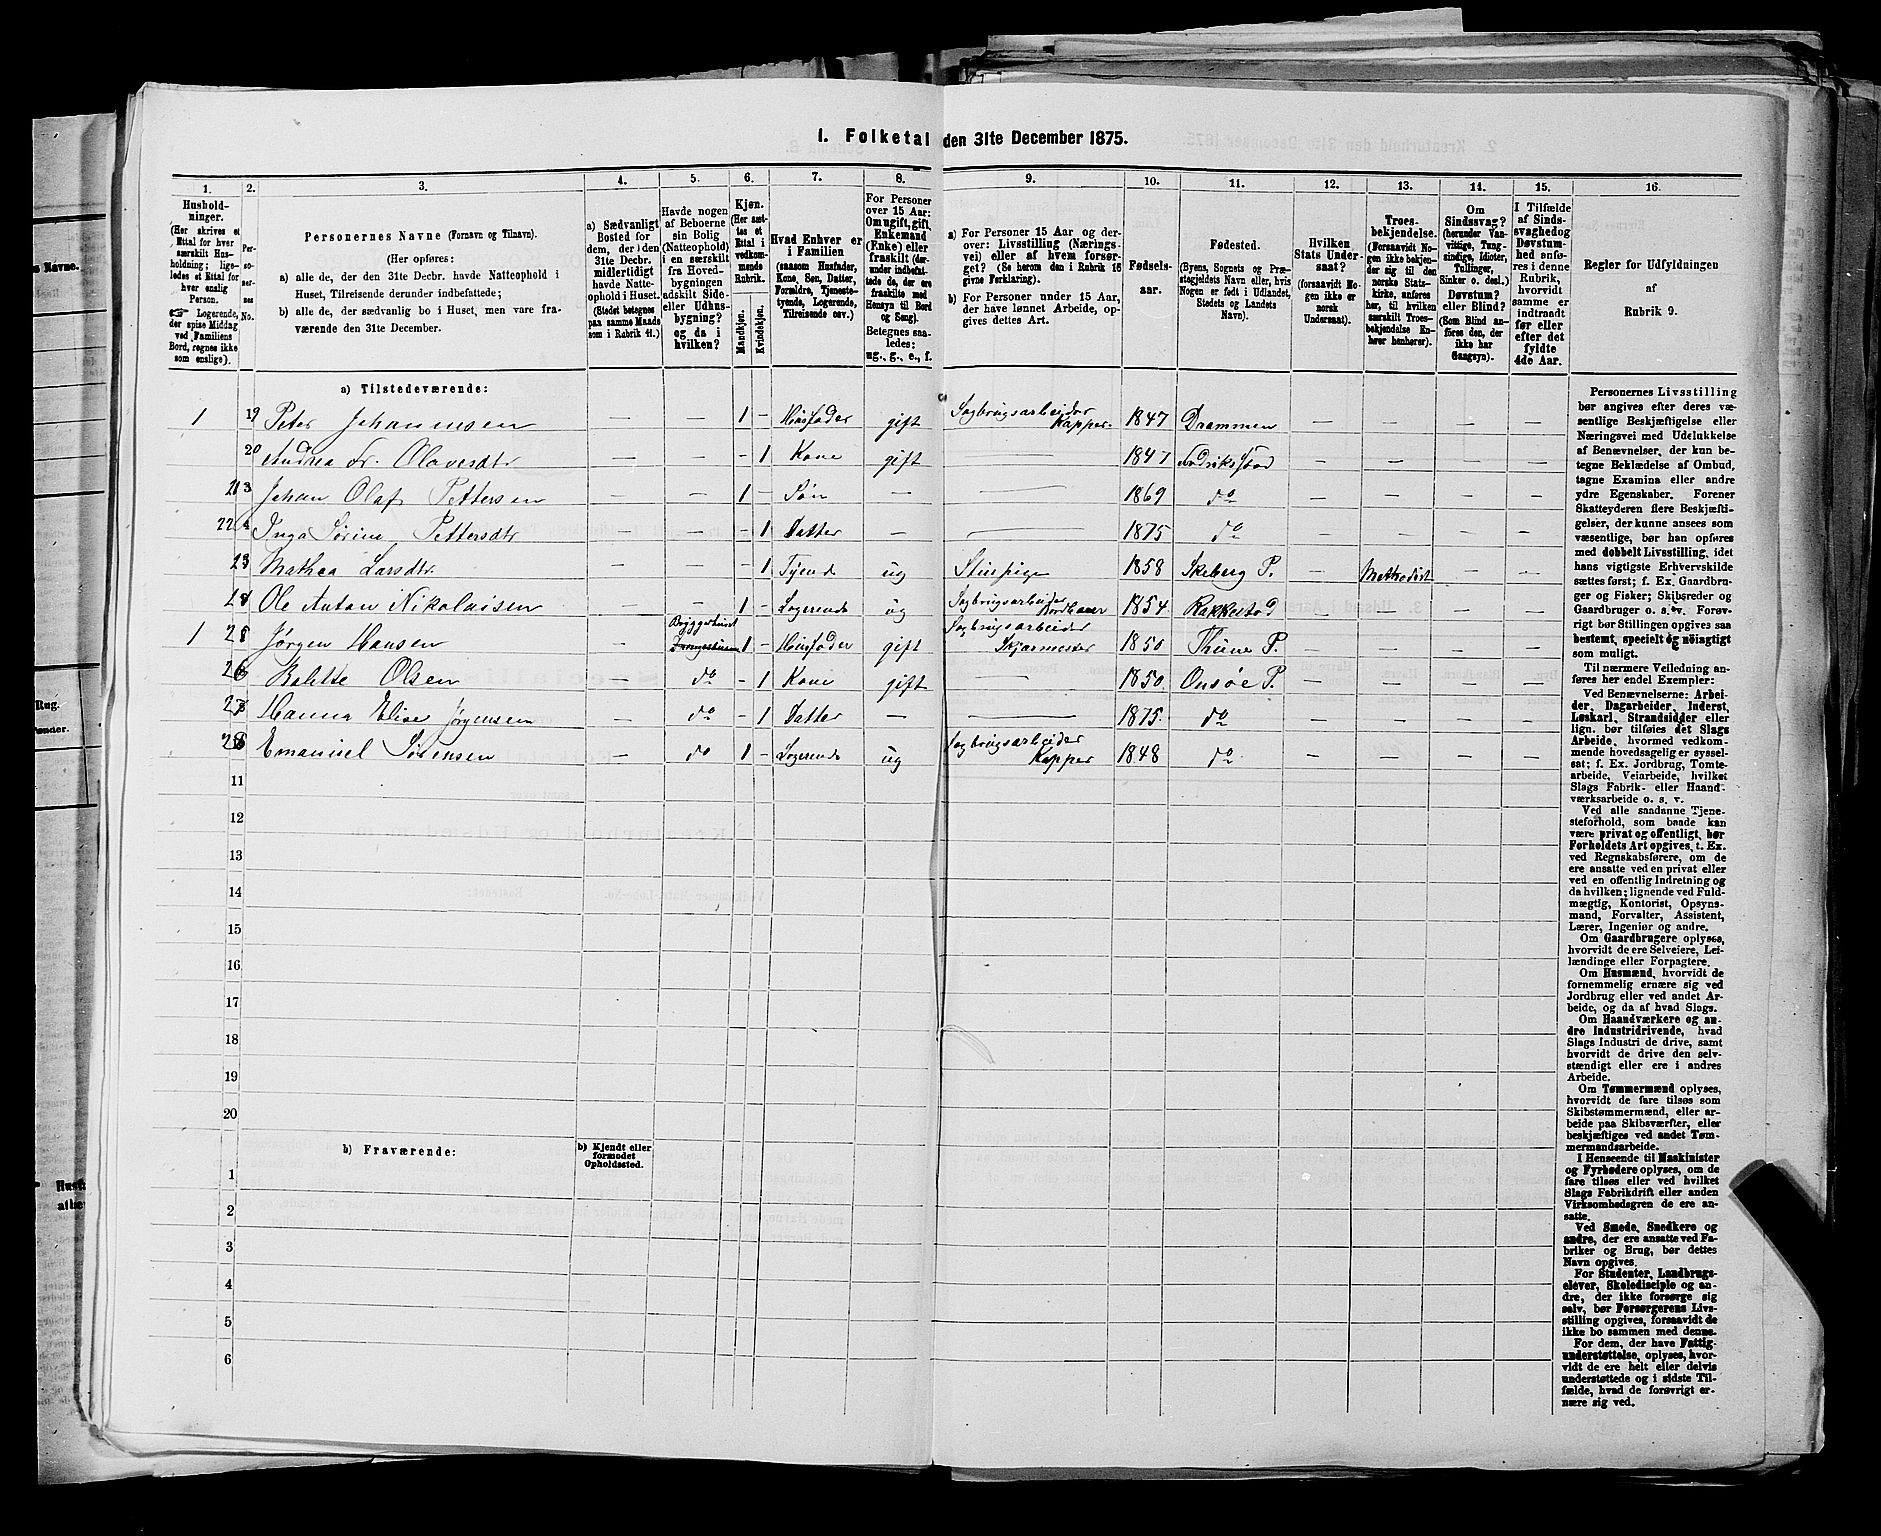 I. Folketal den 31te December 1875.
1. 2. 3. 4. 5. 6. 7. 8. 9. 10. 11. 12. 13. 14. 15. 16.
Husholdninger.
(Her skrives et Ettal for hver særskilt Husholdning; ligeledes et Ettal for hver enslig Person.
☞ Logerende, der spise Middag ved Familiens Bord, regnes ikke som enslige).
Personernes No.
Personernes Navne (Fornavn og Tilnavn).
(Her opføres:
a) alle de, der den 31te Decbr. havde Natteophold i Huset, Tilreisende derunder indbefattede;
b) alle de, der sædvanlig bo i Huset, men vare fraværende den 31te December.
a) Sædvanligt Bosted for dem, der den 31te Decbr. midlertidigt havde Natteophold i Huset. (Stedet betegnes paa samme Maade som i Rubrik 11.)
Havde nogen af Beboerne sin Bolig (Natteophold) i en særskilt fra Hovedbygningen adskilt Side- eller Udhusbygning? og da i hvilken?
Kjøn. (Her sættes et Ettal i vedkommende Rubrik.
Mandkjøn. Kvindekjøn.
Hvad Enhver er i Familien
(saasom Husfader, Kone, Søn, Datter, Forældre, Tjenestetyende, Logerende, Tilreisende osv.)
For Personer over 15 Aar: Om ugift, gift, Enkemand (Enke) eller fraskilt (derunder indbefattede de, der ere fraskilte med Hensyn til Bord og Seng).
Betegnes saaledes: ug., g., e., f.
a) For Personer 15 Aar og derover: Livsstilling (Næringsvei) eller af hvem forsørget? (Se herom den i Rubrik 16 givne Forklaring).
b) For Personer under 15 Aar, der have lønnet Arbeide, opgives dettes Art.
Fødselsaar.
Fødested.
(Byens, Sognets og Præstegjeldets Navn eller, hvis Nogen er født i Udlandet, Stedets og Landets Navn).
Hvilken Stats Undersaat? (forsaavidt Nogen ikke er norsk Undersaat).
Troesbekjendelse. (Forsaavidt Nogen ikke bekjender sig til den norske Statskirke, anføres her, til hvilken særskilt Troesbekjendelse Enhver henhører).
Om Sindssvag? (herunder Vanvittige, Tungsindige, Idioter, Tullinger, Sinker o. desl.)
Døvstum? eller Blind? (Som Blind anføres den, der ikke har Gangsyn).
I Tilfælde af Sindssvaghed og Døvstumhed anføres i denne Rubrik, hvorvidt samme er indtraadt før eller efter det fyldte 4de Aar.
Regler for Udfyldningen af Rubrik 9.
a) Tilstedeværende:
1 19 Peter Johannesen — — 1 – Husfader gift Sagbrugsarbeider Kapper. 1847 Drammen — — — —
20 Andrea Fr. Olavesdtr — — – 1 Kone gift — 1847 Fredrikstad — — — —
21 Johan Olaf Pettersen — — 1 – Søn — — 1869 do — — — —
22 Inga Sørine Pettersdtr — — – 1 Datter — — 1875 do — — — —
23 Mathea Larsdtr. — — – 1 Tyende ug Stuepige 1858 Skeberg P. — Methodist — —
24 Ole Anton Nikolaisen — — 1 – Logerende ug Sagbrugsarbeider 1854 Rakkestad — — — —
1 25 Jørgen Hansen — Bryggerhuset 1 – Husfader gift Sagbrugsarbeider Skjærmester 1850 Thune P. — — — —
26 Balette Olsen — do – 1 Kone gift — 1850. Onsøe P. — — — —
27 Hanna Elise Jørgensen — do – 1 Datter — — 1875. do — — — —
28 Emanuel Sørensen — do 1 – Logerende ug Sagbrugsarbeider Kapper 1848 do — — — —
11
12
13
14
15
16
17
18
19
20
b) Fraværende:
b) Kjendt eller formodet Opholdssted.
1
2
3
4
5
6
Personernes Livsstilling
bør angives efter deres væ-
sentlige Beskjæftigelse eller
Næringsvei med Udelukkelse
af Benævnelser, der kun be-
tegne Beklædelse af Ombud,
tagne Examina eller andre
ydre Egenskaber. Forener
Skatteyderen flere Beskjæfti-
gelser, der kunne ansees som
væsentlige, bør han opføres
med dobbelt Livsstilling, idet
hans vigtigste Erhvervskilde
sættes først; f. Ex. Gaardbru-
ger og Fisker; Skibsreder og
Gaardbruger o. s. v. Forøv-
rigt bør Stillingen opgives saa
bestemt, specielt og nøiagtigt
som muligt.
Til nærmere Veiledning an-
føres her endel Exempler:
Ved Benævnelserne: Arbei-
der, Dagarbeider, Inderst,
Løskarl, Strandsidder eller
lign. bør tilføies det Slags
Arbeide, hvormed vedkom-
mende hovedsagelig er syssel-
sat; f. Ex. Jordbrug, Tomte-
arbeide, Veiarbeide, hvilket
Slags Fabrik- eller Haand-
værksarbeide o. s. v.
Ved alle saadanne Tjene-
steforhold, som baade kan
være privat og offentligt, bør
Forholdets Art opgives, t. Ex.
ved Regnskabsførere, om de
ere ansatte ved en privat eller
ved en offentlig Indretning og
da hvilken; lignende ved Fuld-
mægtig, Kontorist, Opsyns-
mand, Forvalter, Assistent,
Lærer, Ingeniør og andre.
Om Gaardbrugere oplyses,
hvorvidt de ere Selveiere, Lei-
lændinge eller Forpagtere.
Om Husmænd, hvorvidt de
fornemmelig ernære sig ved
Jordbrug eller ved andet Ar-
beide, og da af hvad Slags.
Om Haandværkere og an-
dre Industridrivende, hvad
Slags Industri de drive, samt
hvorvidt de drive den selv-
stændigt eller ere i andres
Arbeide.
Om Tømmermænd oplyses,
hvorvidt de fare tilsøs som
Skibstømmermænd, eller ar-
beide paa Skibsværfter, eller
beskjæftiges ved andet Tøm-
mermandsarbeide.
I Henseende til Maskinister
og Fyrbødere oplyses, om de
fare tilsøs eller ved hvilket
Slags Fabrikdrift eller anden
Virksomhedsgren de ere an-
satte.
Ved Smede, Snedkere og
andre, der ere ansatte ved Fa-
briker og Brug, bør dettes
Navn opgives.
For Studenter, Landbrugs-
elever, Skoledisciple og an-
dre, der ikke forsørge sig
selv, bør Forsørgerens Livs-
stilling opgives, forsaavidt de
ikke bo sammen med denne.
For dem, der have Fattig-
understøttelse, oplyses, hvor-
vidt de ere helt eller delvis
understøttede og i sidste Til-
fælde, hvad de forøvrigt er-
nære sig ved.